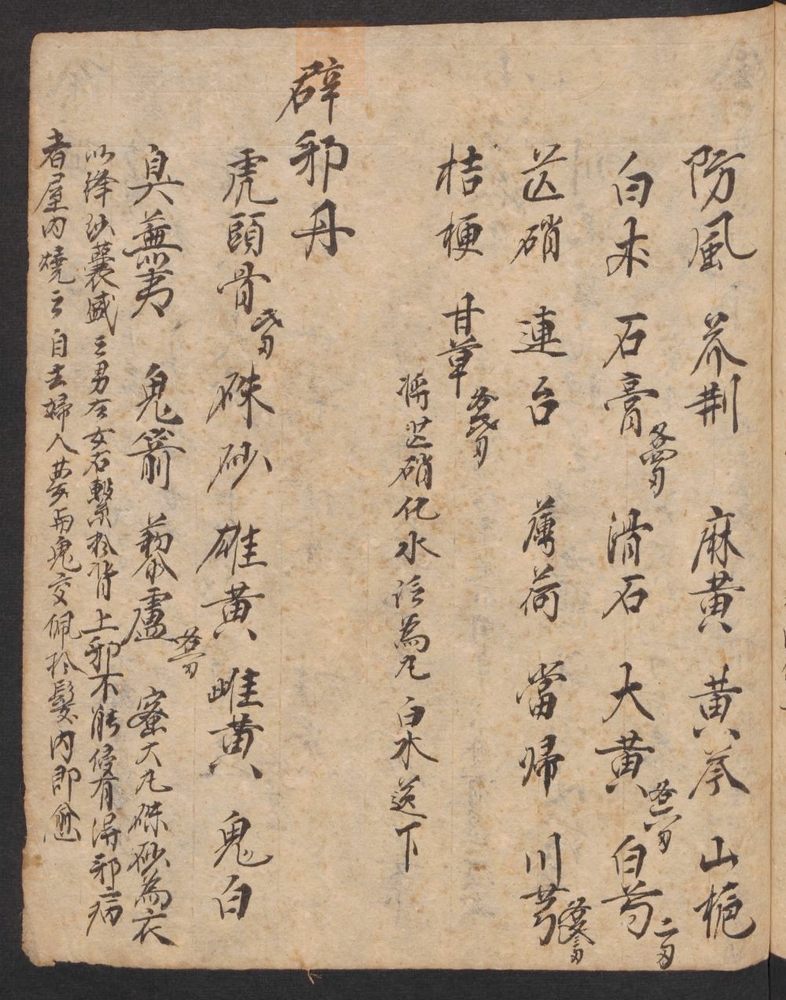 防風 芥荆 麻黄 黄芩 山梔
白术 石膏 滑石 大黄 白芍 二刄
芒硝 連召 薄荷 當帰 川芎
桔梗 甘草
將芒硝化水 為丸 白水送下
辟邪丹
虎頭骨 硃砂 雄黄 雌黄 鬼白
臭蕪夷 鬼箭 藜蘆 蜜大丸硃砂為衣
以绛纱囊盛之男左女右繫扵背上邪不能侵有得邪病
者屋内燒之自去婦人夢与鬼交佩扵髮内即愈